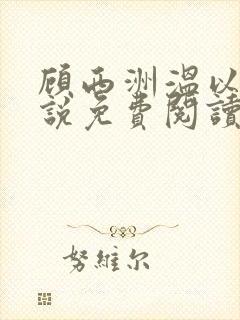 顾西洲溫以
說免費閱讀
努維尔